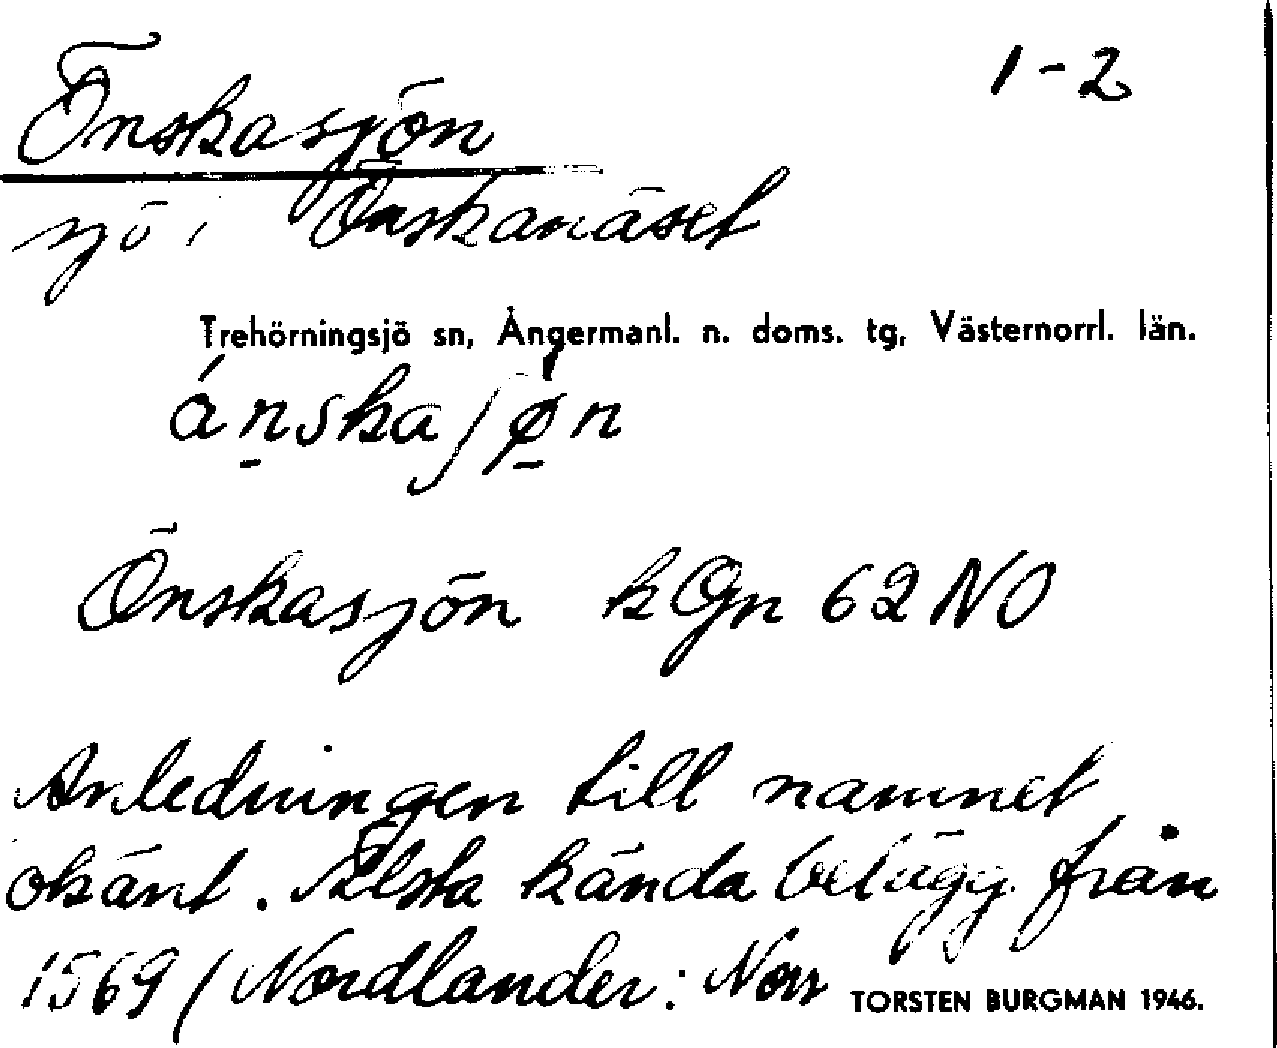 Önskasjön 1-2
sjö i Önskanäset
Trehörningsjö sn, Ångermanl. n. doms. tg, Västernorrl. län.
Önskasjön k Gn 62 NO
Anledningen till namnet
okänt. Älsta kända belägg från
1569 (Nordlander: Norr
TORSTEN BURGMAN 1946.